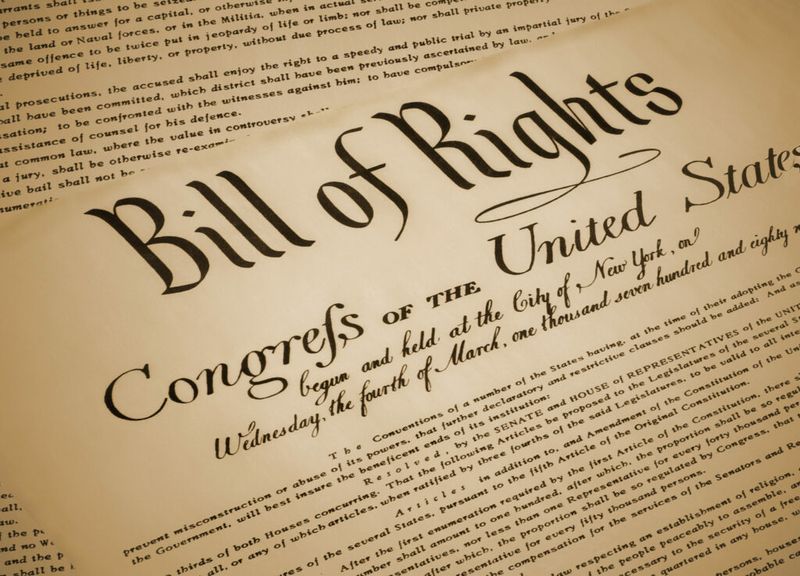 arrants shall
persons or things to be seized.
be held to answer for a capital, or otherwise
the land or Naval forces, or in the Militia, when in actual
same offence to be twice put in jeopardy of life or limb; nor shall be
deprived of life, liberty, or property, without due process of law; nor shall private property
al prosecutions, the accused shall enjoy the right to a speedy and public trial by an impartial jury of the
all have been committed, which district shall have been previously ascertained by law,
sation; to be confronted with the witnesses against him; to have compulsor
ssistance of counsel for his defence.
at common law, where the value in controversy shall
a jury, shall be otherwise re-exami
ive bail shall not be
Bill of Rights
Congreſs OF THE United States
begun and held at the City of New York, on
Wednesday, the fourth of March, one thousand seven hundred and eighty
The Conventions of a number of the States having, at the time of their adopting the
prevent misconstruction or abuse of its powers, that further declaratory and restrictive clauses should be added: And as
the Government, will best insure the beneficent ends of its institution:
Resolved, by the SENATE and HOUSE of REPRESENTATIVES of the UNIT
thirds of both Houses concurring. That the following Articles be proposed to the Legislatures of the several S
all, or any of which articles, when ratified by three fourths of the said Legislatures, to be valid to all inten
Articles in addition to, and Amendment of the Constitution of the Uni
res of the several States, pursuant to the fifth Article of the Original Constitution.
After the first enumeration required by the first Article of the Constitution, there s
number shall amount to one hundred, after which, the proportion shall be so regu
esentatives, nor less than one Representative for every forty thousand pers
after which, the proportion shall be so regulated by Congress, that
esentative for every fifty thousand persons.
the compensation for the services of the Senators and Re
law respecting an establishment of religion,
the people peaceably to assemble, an
necessary to the security of a free
quartered in any house, w
persons, houses
all,
law.
of the
and no W
and the p
shall be i